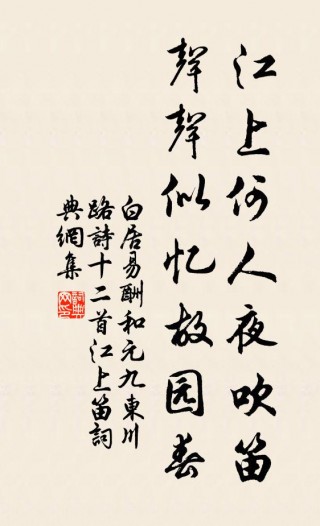 江上何人夜吹笛
聲聲似忆故园春
白居易酬和元九東川
路詩十二首江上笛詞
典網集